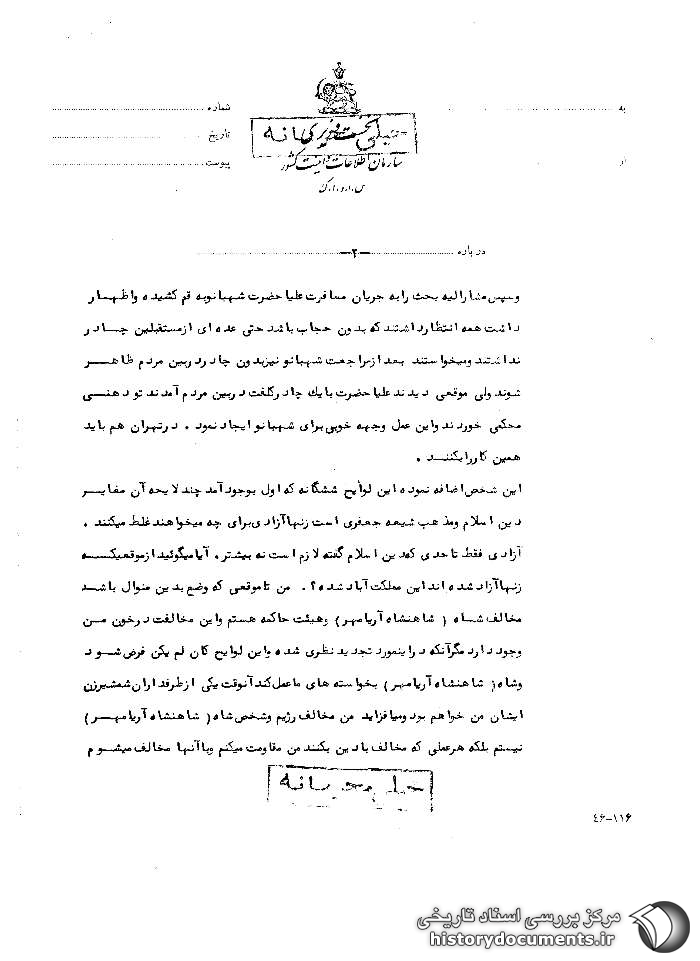 به
شماره
تاریخ
از
پیوست
سازمان اطلاعات و امنیت کشور
س.ا.و.ا.ک
درباره —۲—
و سپس مشارالیه بحث را به جریان مسافرت علیاحضرت شهبانو به قم کشیده و اظهار
داشت همه انتظار داشتند که بدون حجاب باشد حتی عده ای از مستقبلین چادر
نداشتند و میخواستند بعد از مراجعت شهبانو نیز بدون چادر در بین مردم ظاهر
شوند ولی موقعی دیدند علیاحضرت با یک چادر کلفت در بین مردم آمدند تودهنی
محکمی خوردند و این عمل وجهه خوبی برای شهبانو ایجاد نمود . در تهران هم باید
همین کار را بکنند .
این شخص اضافه نموده این لوایح ششگانه که اول بوجود آمد چند لایحه آن مغایر
دین اسلام و مذهب شیعه جعفری است زنها آزادی برای چه میخواهند غلط میکنند .
آزادی فقط تا حدی که دین اسلام گفته لازم است نه بیشتر . آیا میگوئید از موقعیکه
زنها آزاد شده اند این مملکت آباد شده ؟ . من تا موقعی که وضع بدین منوال باشد
مخالف شاه ( شاهنشاه آریامهر ) و هیئت حاکمه هستم و این مخالفت در خون من
وجود دارد مگر آنکه در اینمورد تجدید نظری شده و این لوایح کان لم یکن فرض شود
و شاه ( شاهنشاه آریامهر ) بخواسته های ما عمل کند آنوقت یکی از طرفداران شمشیرزن
ایشان من خواهم بود و میافزاید من مخالف رژیم و شخص شاه ( شاهنشاه آریامهر )
نیستم بلکه هر عملی که مخالف با دین بکنند من مقاومت میکنم و با آنها مخالف میشوم
خیلی محرمانه
۴۶-۱۱۶
مرکز بررسی اسناد تاریخی
historydocuments.ir